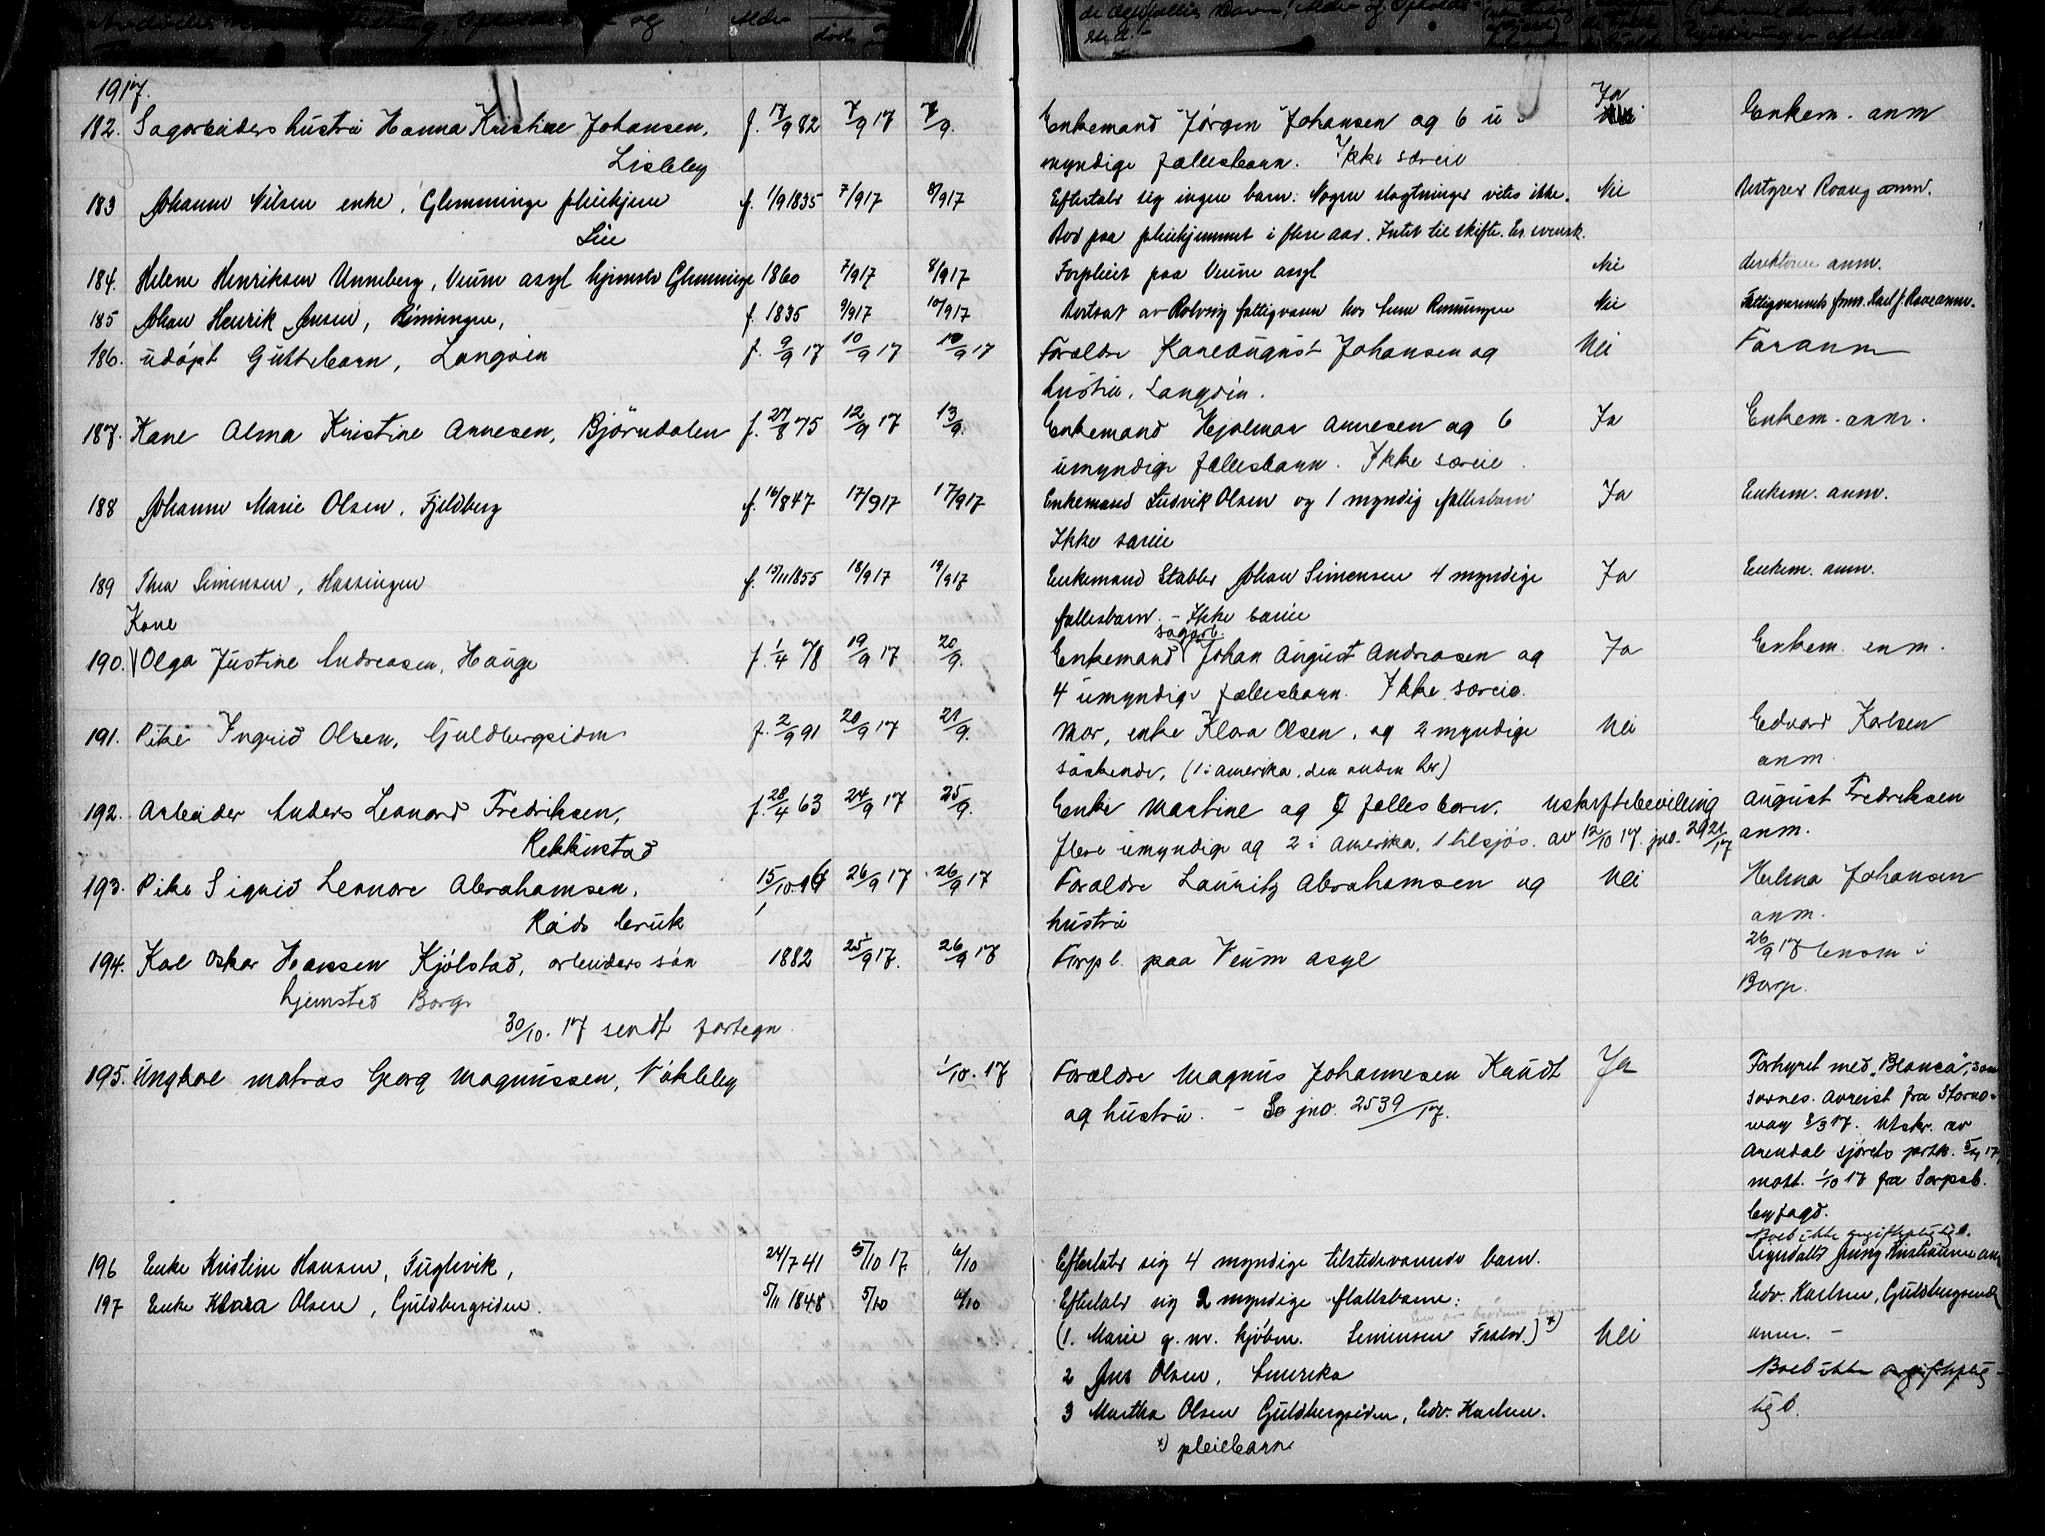 1917.
182. Sagarbeiders hustru Hanna Kristine Johansen, f. 17/9 82 7/9 17 7/9. Enkemand Jørgen Johansen og 6 u- Ja Enkem. anm
Lisleby myndige fællesbarn. Ikke særeie
183 Johanne Nilsen enke, Glemminge pleiehjem f. 1/9 1835 7/917 8/917 Efterlater sig ingen barn. Nogen slægtninger vites ikke. Nei Bestyrer Roang anm.
Lie Bod paa pleiehjemmet i flere aar. Intet til skifte. Er svensk.
184. Helene Henriksen Unneberg, Veum asyl hjemsted Glemminge 1860 7/917 8/917 Forpleiet paa Veum asyl Nei direktøren anm.
185 Johan Henrik Jensen, Rimmingen, f. 1835 9/917 10/917 Bortsat av Rolvsøy fattigvæsen hos Rimmingen Nei Fattigvæsenets form. Karl J. anm.
186. udøpt Guttebarn, Langøien f. 9/9 17 10/9 17 10/9 17 Forældre Karl August Johansen og Nei Far anm
hustru, Langøien.
187. Kone Alma Kristine Arnesen, Björndalen f. 27/8 75 12/9 17 13/9. Enkemand Hjalmar Arnesen og 6 Ja Enkem. anm.
umyndige fællesbarn. Ikke særeie.
188 Johanne Marie Olsen, Fjeldberg f. 16/847 17/917 17/917 Enkemand Ludvik Olsen og 1 myndig fællesbarn Ja Enkem. anm.
Ikke særeie
189 Thea Simensen, Hassingen f. 15/11 1855 18/917 19/917 Enkemand Stabler Johan Simensen 4 myndige Ja Enkem. anm.
fællesbarn. - Ikke særeie
Kone sagarb.
190. Olga Justine Andreasen, Hauge f. 1/4 78 19/9 17 20/9. Enkemand Johan August Andreasen og Ja Enkem. anm.
4 umyndige fællesbarn. Ikke særeie.
191. Pike Ingrid Olsen, Guldbergsiden f. 2/9 91 20/9 17 21/9. Mor, enke Klara Olsen, og 2 myndige Nei Edvard Karlsen
søskende, (1 i Amerika, den anden her) anm.
192. Arbeider Anders Leonard Fredriksen, f. 28/4 63 24/9 17 25/9. Enke Martine og fællesbarn. Uskiftebevilling August Fredriksen
Rekkustad flere umyndige og 2 i Amerika, 1 tilsjøs. av 12/10 17. jno. 2921/17 anm.
193. Pike Sigrid Leonore Abrahamsen, 15/10 96 26/9 17 26/9 17 Forældre Lauritz Abrahamsen og Nei Helma Johansen
Råds bruk hustru anm.
194. Karl Oskar Hansen Kjölstad, arbeiders søn 1882 25/9 17. 26/9 17 Forpl. paa Veum asyl 26/9 17 lensm i
hjemsted Borge Borge.
30/10. 17 sendt fortegn.
195. Ungkar matros Georg Magnussen, Nökleby 1/10. 17 Forældre Magnus Johannesen Knudt Ja Forhyret med "Blanca", som
og hustru. - Se jno. 2539/17. savnes. Avreist fra Storno-
way 8/3 17. Utskr. av
Arendal sjørets protk. 5/9 17,
mott. 1/10 17 fra Sarpsb.
byfogd.
Boet ikke avgiftspligtig.
196 Enke Kristine Hansen, Fuglevik, 24/7 41 5/10 17 6/10 Efterlater sig 4 myndige tilstedeværende barn. Kristiansen anm
197 Enke Klara Olsen, Guldbergsiden. 5/11 1848 5/10 6/10 Efterlater sig 2 myndige fællesbarn: Edv. Karlsen, Guldbergsiden
(1. Marie g. m. kjøbm. Simensen Fralsv.) x) Nei anm. -
2 Jens Olsen, Amerika Boet ikke avgiftsplig-
3 Martha Olsen Guldbergsiden, Edv. Karlsen. tig.
x) pleiebarn